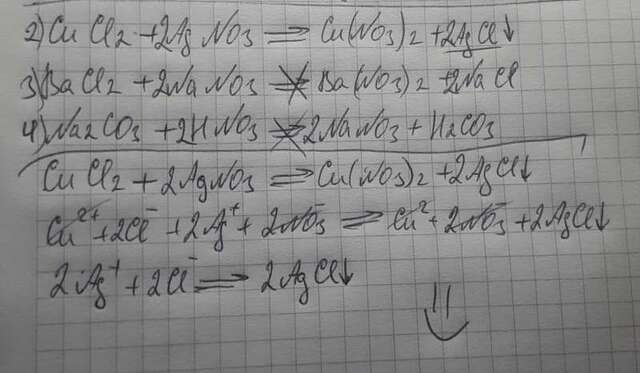 2) CuCl2 + 2AgNO3 = Cu(NO3)2 + 2AgCl↓
3) BaCl2 + 2NaNO3 ≠ Ba(NO3)2 + 2NaCl
4) Na2CO3 + 2HNO3 ≠ 2NaNO3 + H2CO3
CuCl2 + 2AgNO3 = Cu(NO3)2 + 2AgCl↓
Cu²⁺ + 2Cl⁻ + 2Ag⁺ + 2NO3⁻ = Cu² + 2NO3⁻ + 2AgCl↓
2Ag⁺ + 2Cl⁻ = 2AgCl↓